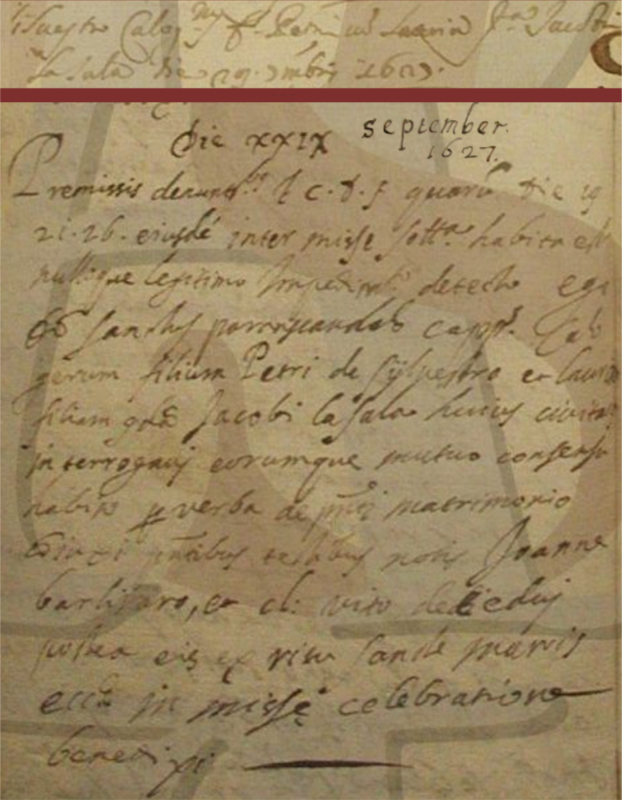 Silvestro Calog. f. Petri cu Lauria f. Jacobi
la Sala die 29 7mbris 1627.
Die XXIX september.
1627.
Premissis denunt. t c. d. s quarū die 19
21. 26. eiusdē inter misse sott. habita est
nulloque legitimo Impedim.to detecto ego
D. parochiandus capp.s Calo
gerum filium Petri de Sylvestro et lauria
filiam qdā Jacobi la Sala huius civitatis
interrogavj eorumque mutuo consensu
habito p verba de pnti matrimonio
coniunxi pntibus testibus notis Joanne
barlisaro, et cl: vito
postea eis ex ritu sancte matris
eccle in misse celebratione
benedixi